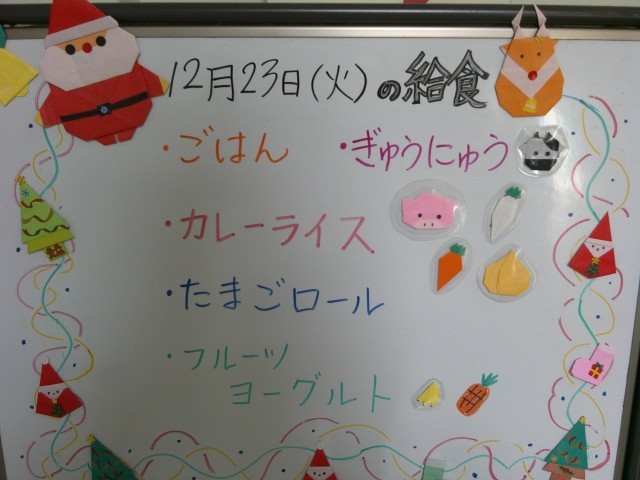 12月23日(火)の給食
・ごはん ・ぎゅうにゅう
・カレーライス
・たまごロール
・フルーツ
ヨーグルト